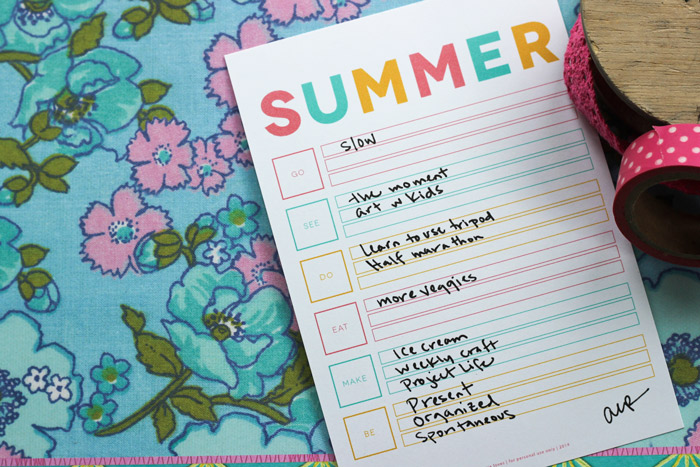 SUMMER
GO
slow
SEE
the moment
art w kids
DO
learn to use tripod
Half marathon
EAT
more veggies
MAKE
Ice cream
weekly craft
Project Life
BE
Present
organized
Spontaneous
for personal use only | 2014